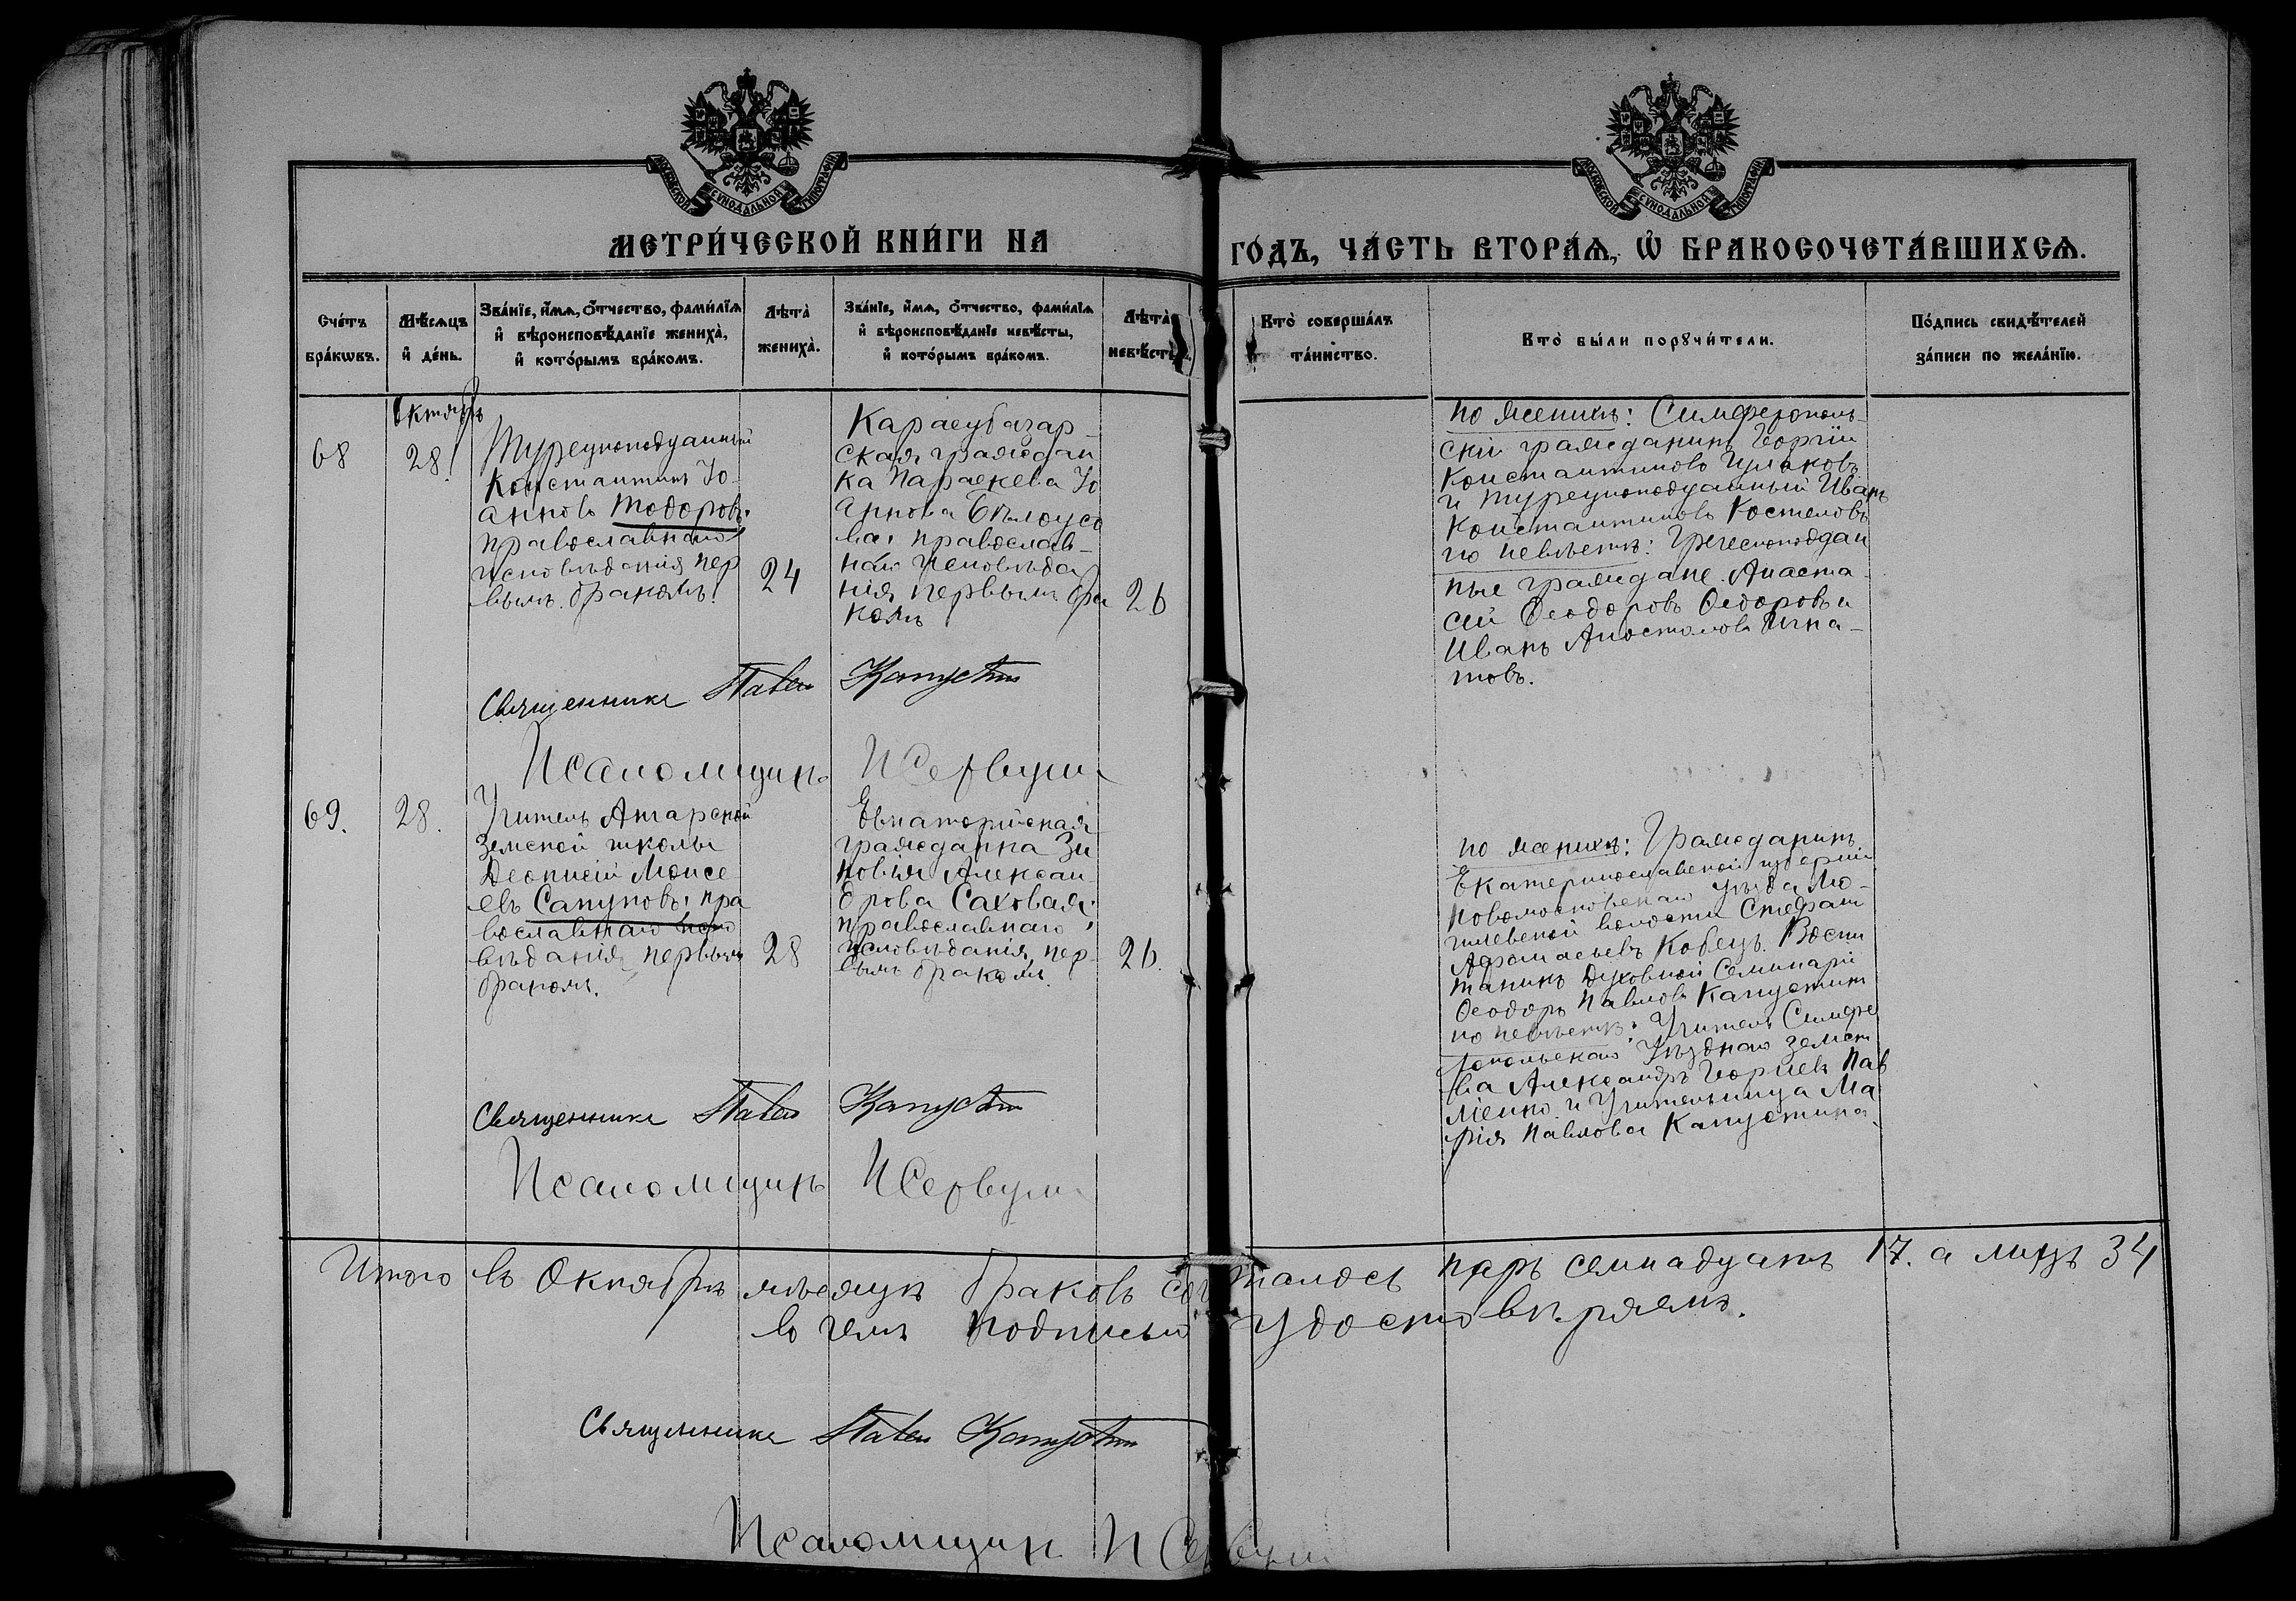 МОСКОВСКОЙ СѴНОДАЛЬНОЙ ТИПОГРАФІИ
МОСКОВСКОЙ СѴНОДАЛЬНОЙ ТИПОГРАФІИ
МЕТРИ́ЧЕСКОЙ КНИ́ГИ НА
ГО́ДЪ, ЧА́СТЬ ВТОРА́Ѧ, Ѡ҆ БРАКОСОЧЕТА́ВШИХСѦ.
Сче́тъ бра́кѡвъ.
Мѣ́сѧцъ и҆ де́нь.
Зва́нїе, и҆́мѧ, ѻ҆́тчество, фами́лїѧ
и҆ вѣроисповѣ́данїе жениха̀,
и҆ кото́рымъ бра́комъ.
Лѣ́та̀ жениха̀.
Зва́нїе, и҆́мѧ, ѻ҆́тчество, фами́лїѧ
и҆ вѣроисповѣ́данїе невѣ́сты,
и҆ кото́рымъ бра́комъ.
Лѣ́та̀
Кто̀ соверша́лъ та́инство.
Кто̀ бы́ли порꙋчи́тели.
По́дпись свидѣ́телей
за́писи по жела́нїю.
Октябрь
68
28.
Турецкоподданный
Константинъ Іо
анновъ Тодоровъ,
православнаго
исповѣданія пер
вымъ бракомъ.
24
Карасубазар-
ская граждан
ка Параскева Іо
аннова Бѣлоусо
ва, православ-
наго исповѣда
нія первымъ бра
комъ
26
по женихѣ: Симферополь-
скій гражданинъ Георгій
Константиновъ
и турецкоподданный Иванъ
Константиновъ Костеловъ
по невѣстѣ: Греческоподдан
ные граждане Анаста
сій Ѳеодоровъ Ѳедоровъ и
Иванъ Апостоловъ Игна-
товъ.
Священникъ Павелъ Капустинъ
Псаломщикъ И
69.
28.
Учитель Ангарской
Земской школы
Леонтій Моисе
евъ Сапуновъ, пра
вославнаго испо
вѣданія, первымъ
бракомъ.
28
Евпаторійская
гражданка Зи
новія Алексан
дрова Саховая,
православнаго
исповѣданія, пер-
вымъ бракомъ.
26.
по женихѣ: Гражданинъ
Екатеринославской губерніи
Новомосковскаго уѣзда Мо-
гилевской волости Стефанъ
Афанасьевъ Кобецъ. Воспи
танникъ Духовной Семинаріи
Ѳеодоръ Павловъ Капустинъ
по невѣстѣ: Учитель Симфе
ропольскаго Уѣзднаго Земст
ва Александръ Георгіевъ Пав
ленко и Учительница Ма
рія Павлова Капустина
Священникъ Павелъ Капустинъ
Псаломщикъ И
Итого въ Октябрѣ мѣсяцѣ браковъ сочеталось паръ семнадцать 17. а лицъ 34
въ чемъ подписью удостовѣряемъ.
Священникъ Павелъ Капустинъ
Псаломщикъ И